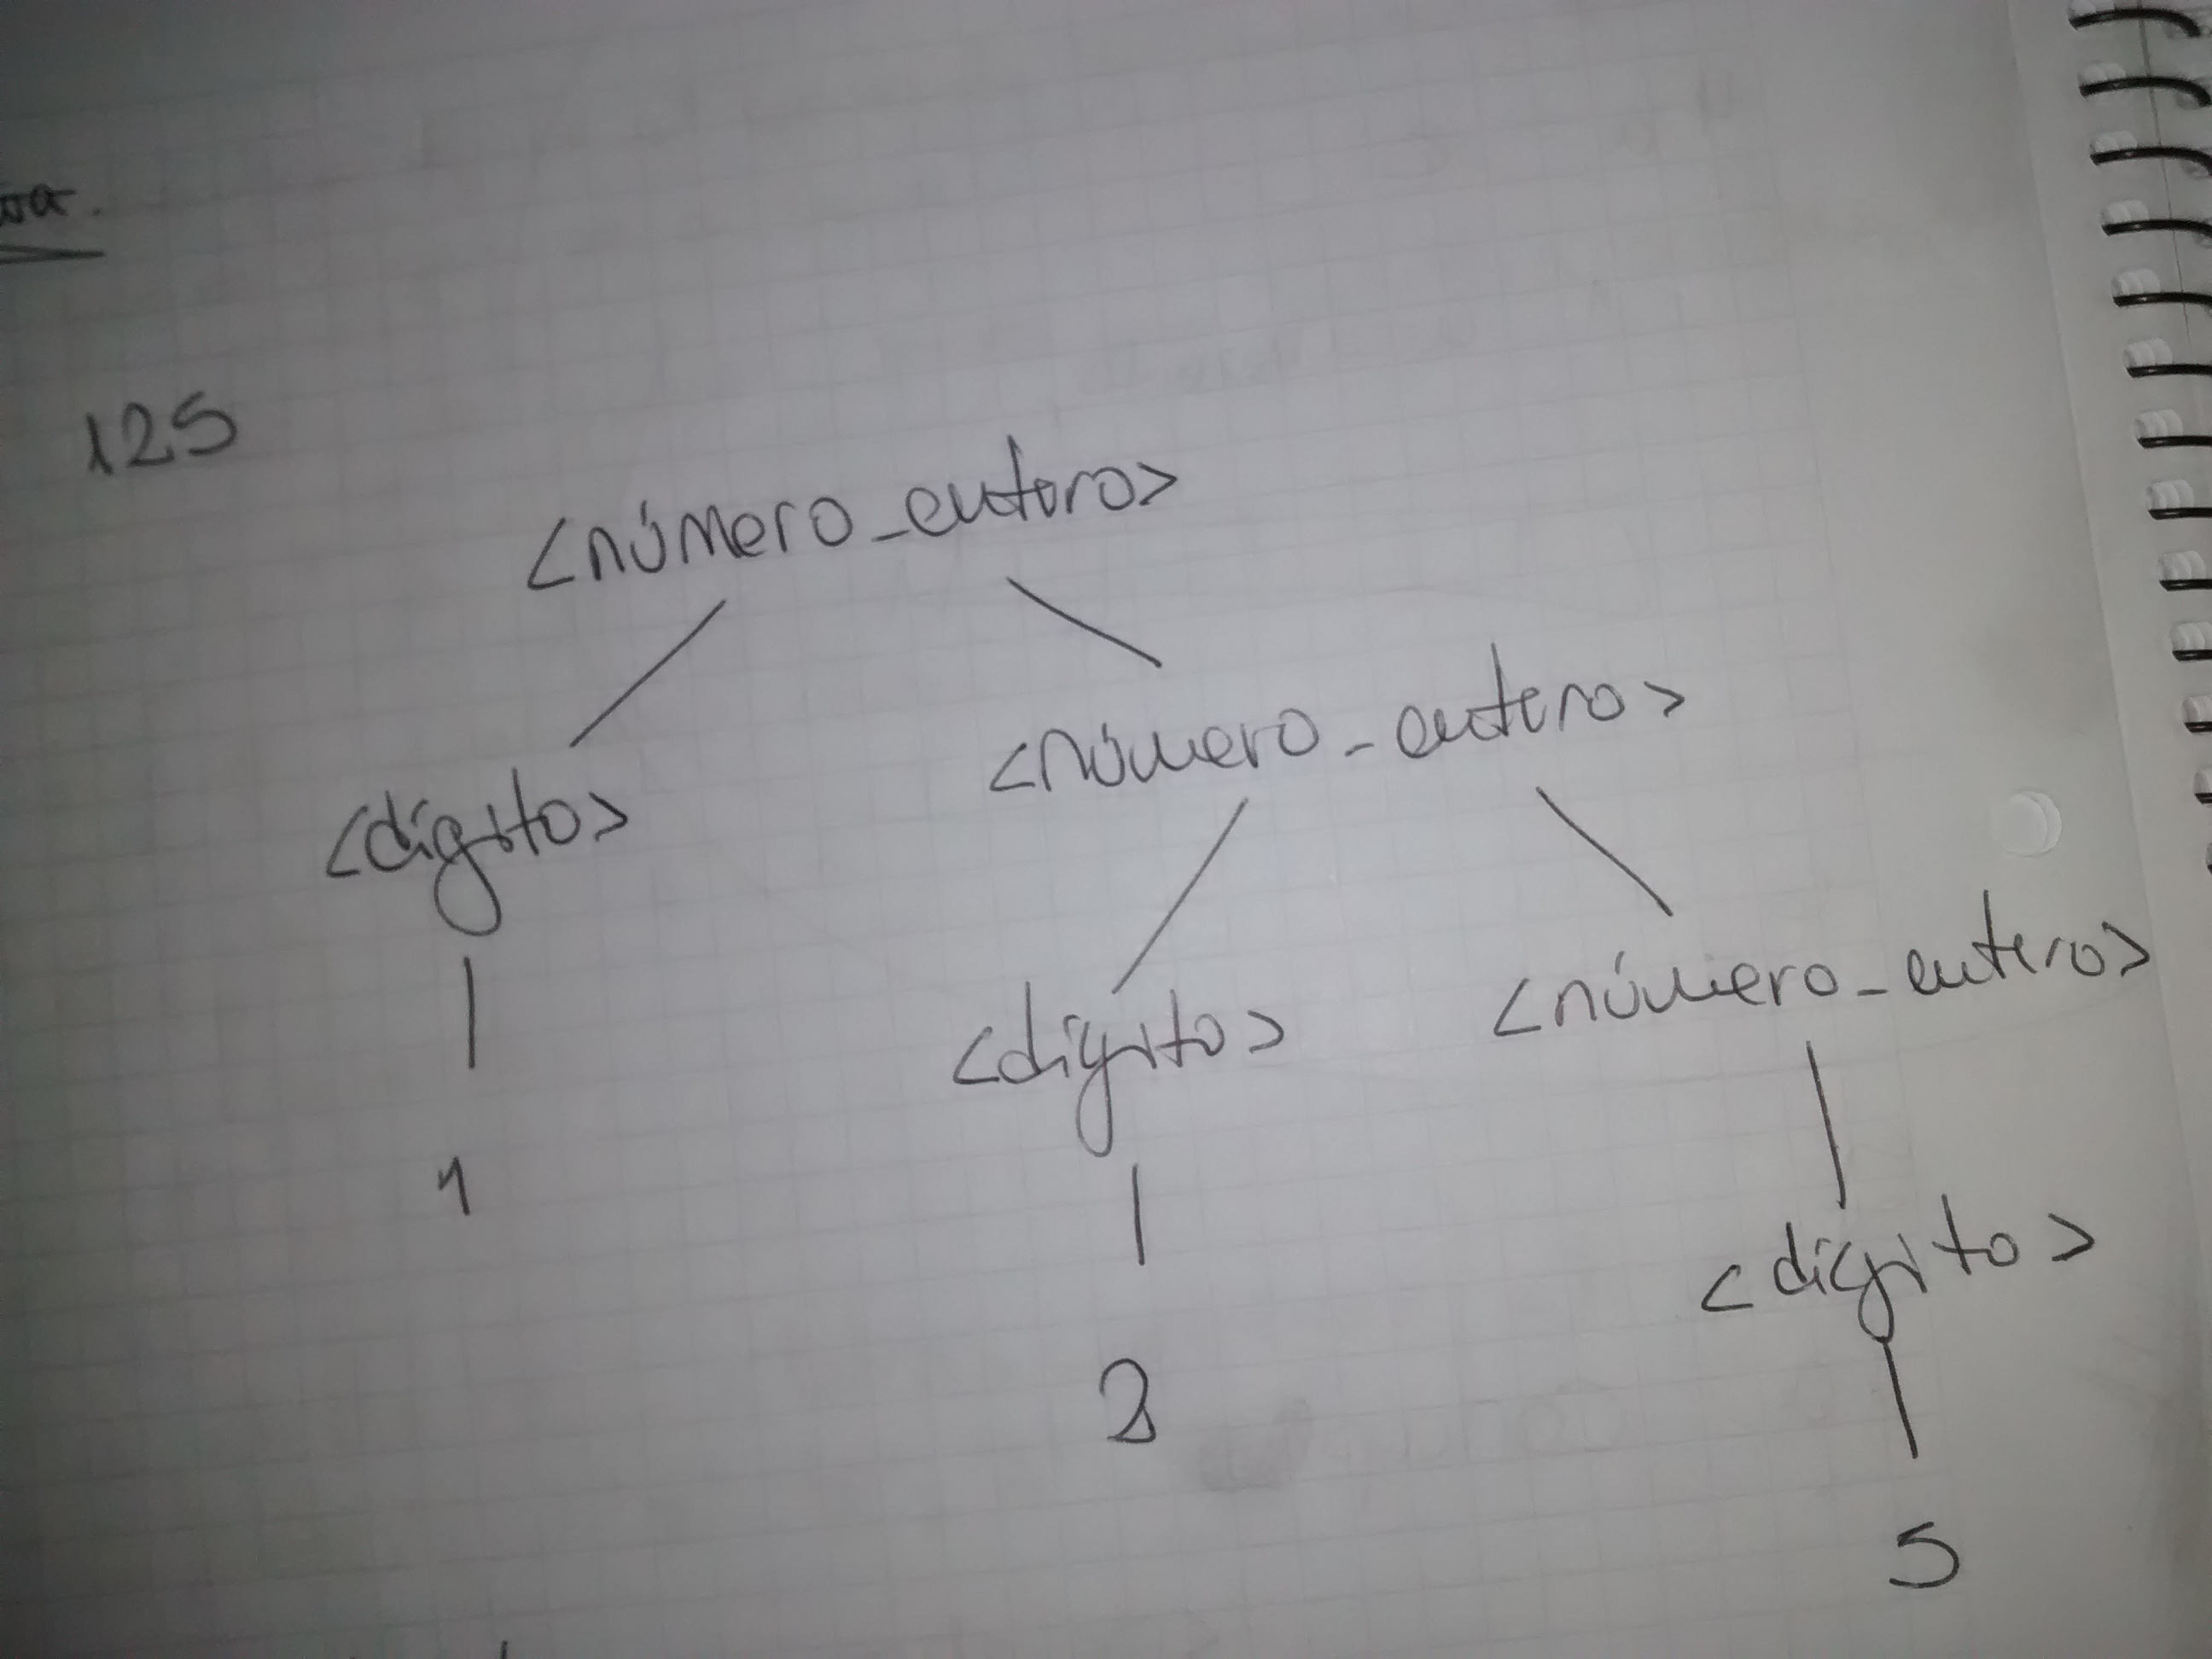 125
<número_entero>
<dígito> <número_entero>
1 <dígito> <número_entero>
2 <dígito>
5